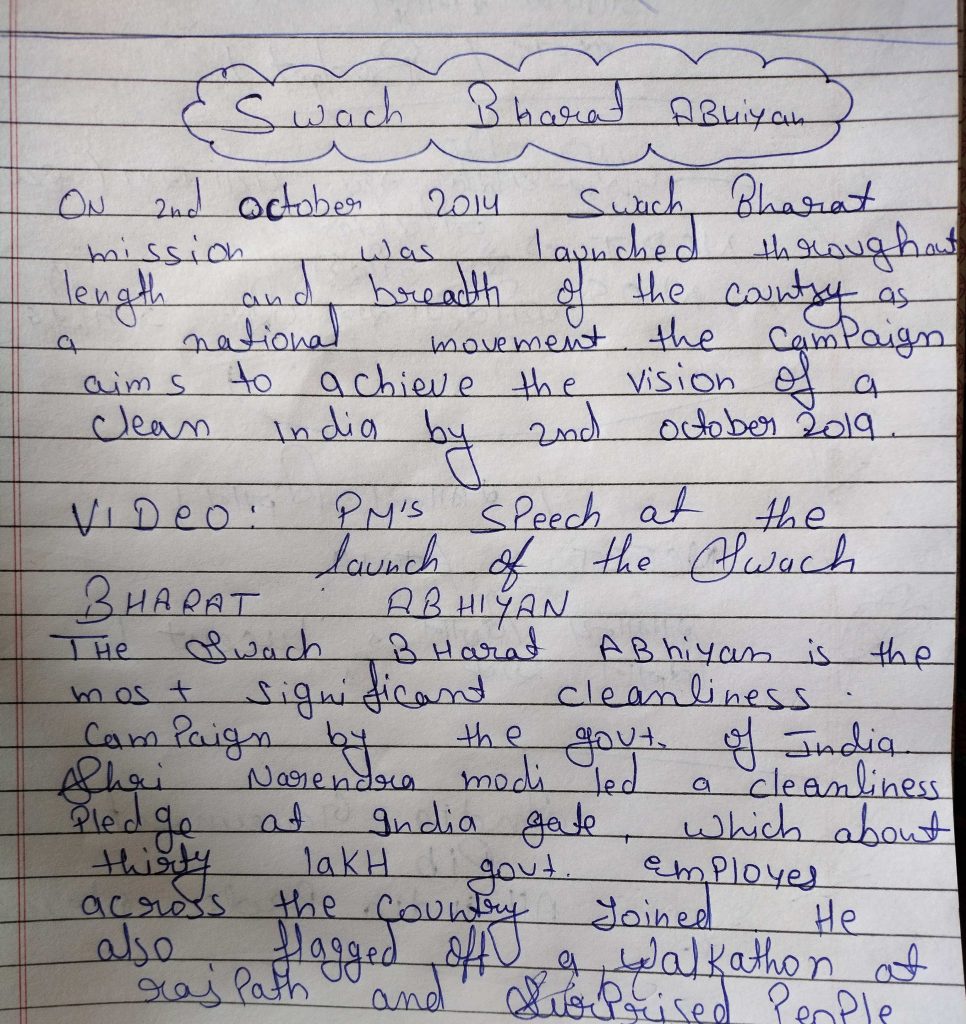 Swach Bharat ABhiyan
ON 2nd october 2014 Swach Bharat
mission was launched throughout
length and breadth of the country as
a national movement. the camPaign
aims to achieve the vision of a
clean india by 2nd october 2019.
VIDeO: PM's SPeech at the
launch of the Swach
BHARAT ABHIYAN
THe Swach BHarat ABhiyan is the
most significant cleanliness.
CamPaign by the govt. of India.
Shri Narendra modi led a cleanliness
Pledge at India gate, which about
thirty laKH govt. emPloyes
across the country Joined He
also flagged off a walKathon at
rajPath and SurPrised PeoPle